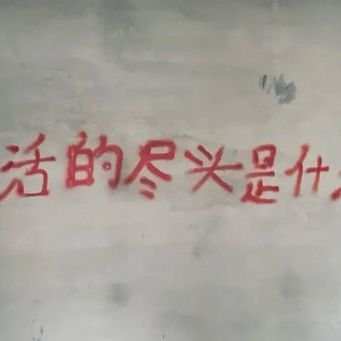 活的尽头是什